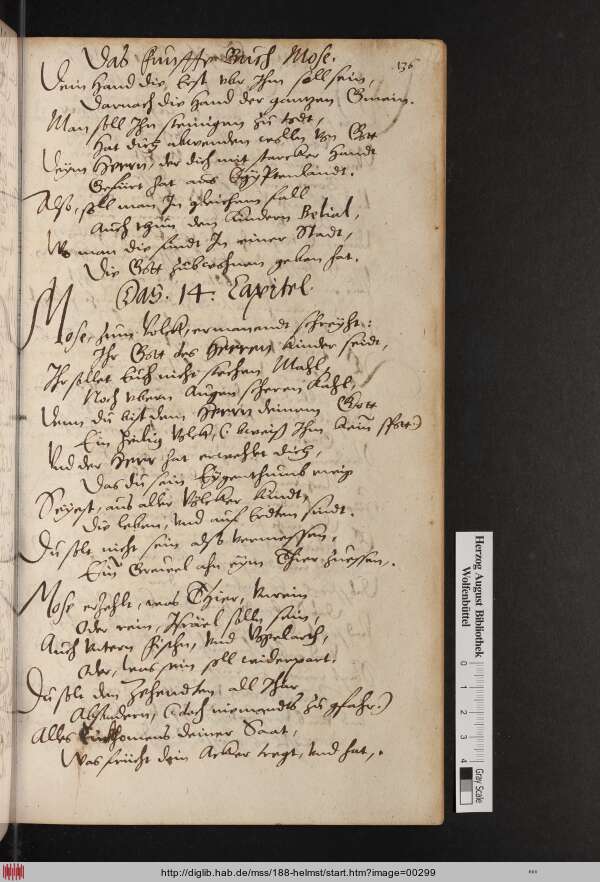 Das fünffte Buch Mose.
136
Dein Hand die Erst vbr Ihm soll sein,
Darnach die Hand der gantzen Gmein.
Man soll Ihn steinigen zu todt,
Hat dich abwenden wolln von Gott
Deim Herrn, der dich mit starcker Handt
Gefürt hat aus Egÿptenlandt.
Also, soll man In gleichem fall
Auch thun den Kindern Belial,
Wo man die findt In einer Stadt,
Die Gott zubwohnen geben hat.
Das. 14. Capitel.
Mose, zum Volk, ermanendt schreÿht:
Ihr Gott des Herren Kinder seidt,
Ihr sollet Euch nicht stechen Mahl,
Noch vbern Augen scheren Kahl,
Denn du bist dem Herrn deinem Gott
Ein heilig Volck, (: beweiß Ihm kein spott:)
Vnd der Herr hat erwehlt dich,
Das du sein Eÿgenthumb ewig
Seÿest, aus aller Völcker kundt,
Die leben, vnd auf Erdten sindt.
Du solt nicht sein also vermessen,
Ein Greuel ahn eÿm Thier zuessen.
Mose erzehlt, was Thier, Vnrein
Oder rein, Israel solln sein,
Auch vntern Fischn, vnd Vogelarth,
Oder, was sein soll widerpart.
Du solt den Zehendten all Jhar
Absondern, (: doch niemandts zu gfahr:)
Alles Einkhomens deiner Saat,
Was frücht dein Acker tregt, vnd hat,.
Herzog August Bibliothek
Wolfenbüttel
0 1 2 3 4
Gray Scale
http://diglib.hab.de/mss/188-helmst/start.htm?image=00299